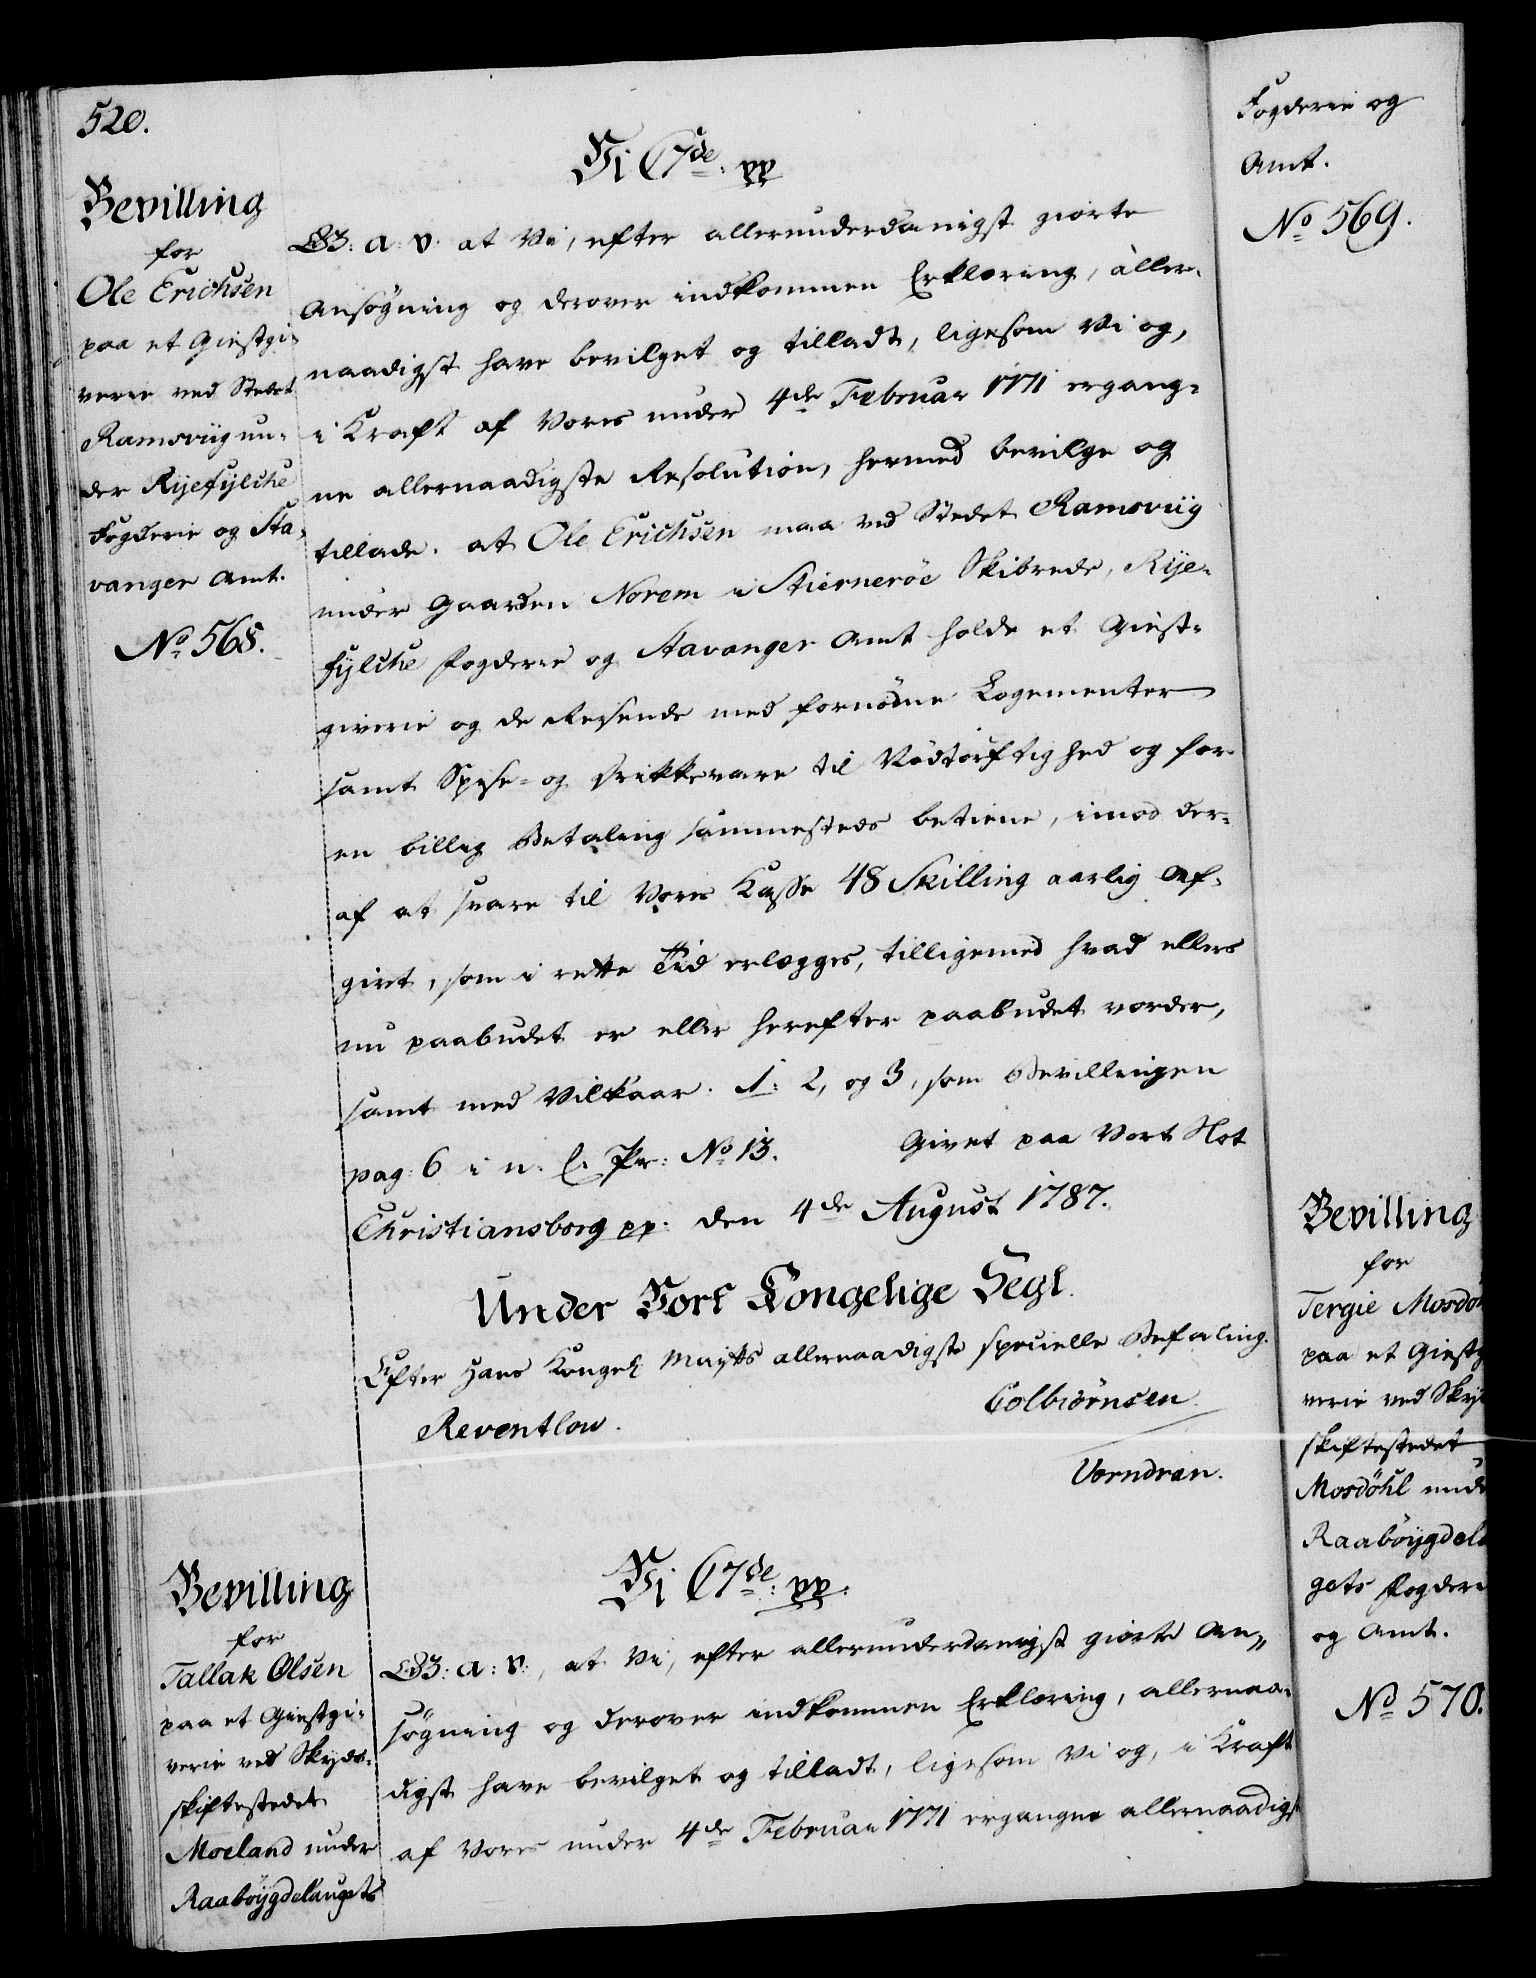 520.
Bevilling
for
Ole Erichsen
paa et Giestgi-
verie ved Stedet
Ramsviig un-
der Rÿefÿlche
Fogderie og Sta-
vanger Amt.
No 568.
Vi C 7de: pp
G: a: v: at Vi, efter allerunderdanigst giorte
Ansøgning og derover indkommen Erklæring, aller-
naadigst have bevilget og tilladt, ligesom Vi og,
i Kraft af Vores under 4de Februar 1771 ergang-
ne allernaadigste Resolution, hermed bevilge og
tillade. at Ole Erichsen maa ved Stedet Ramsviig
under Gaarden Norem i Stiernerøe Skibrede, Rÿe-
fÿlche Fogderie og Stavanger Amt holde et Giest-
giverie og de Reisende med fornødne Logementer
samt Spise- og Drikkevare til Nødtørftighed og for
en billig Betaling sammesteds betiene, imod der-
af at svare til Vores Kasse 48 Skilling aarlig Af-
givt, som i rette Tid erlægges, tilligemed hvad ellers
nu paabudet er eller herefter paabudet vorder,
samt med Vilkaar. 1: 2, og 3, som Bevillingen
pag: 6 i n. l. Pr: No 13. Givet paa Vort Slot
Christiansborg pp: den 4de August 1787.
Under Vort Kongelige Segl.
Efter Hans Kongel: Mayts allernaadigste specielle Befaling.
Reventlow. Colbiørnsen
Vorndran.
Bevilling
for
Tallak Olsen
paa et Giestgi-
verie ved Skyds-
skiftestedet
Moeland under
Raabøÿgdelaugets
Vi C 7de: pp:
G: a: v:, at Vi, efter allerunderdanigst giorte An-
søgning og derover indkommen Erklæring, allernaa-
digst have bevilget og tilladt, ligesom Vi og, i Kraft
af Vores under 4de Februar 1771 ergangne allernaadigst
Fogderie og
Amt.
No 569.
Bevilling
for
Tergie Mosdøh
paa et Giestg
verie ved Skyd
skiftestedet
Mosdøhl unde
Raabøÿgdela
gets Fogderi
og Amt.
No 570.